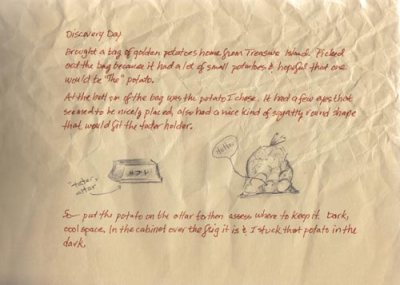 Discovery Day
Brought a bag of golden potatoes home from Treasure Island. Picked
out the bag because it had a lot of small potatoes & hopeful that one
would be "The" potato.
At the bottom of the bag was the potato I chose. It had a few eyes that
seemed to be nicely placed, also had a nice kind of squatty round shape
that would fit the tater holder.
"tater"
altar
Hello
So put the potato on the altar to then assess where to keep it. Dark,
cool space. In the cabinet over the frig it is & I stuck that potato in the
dark.